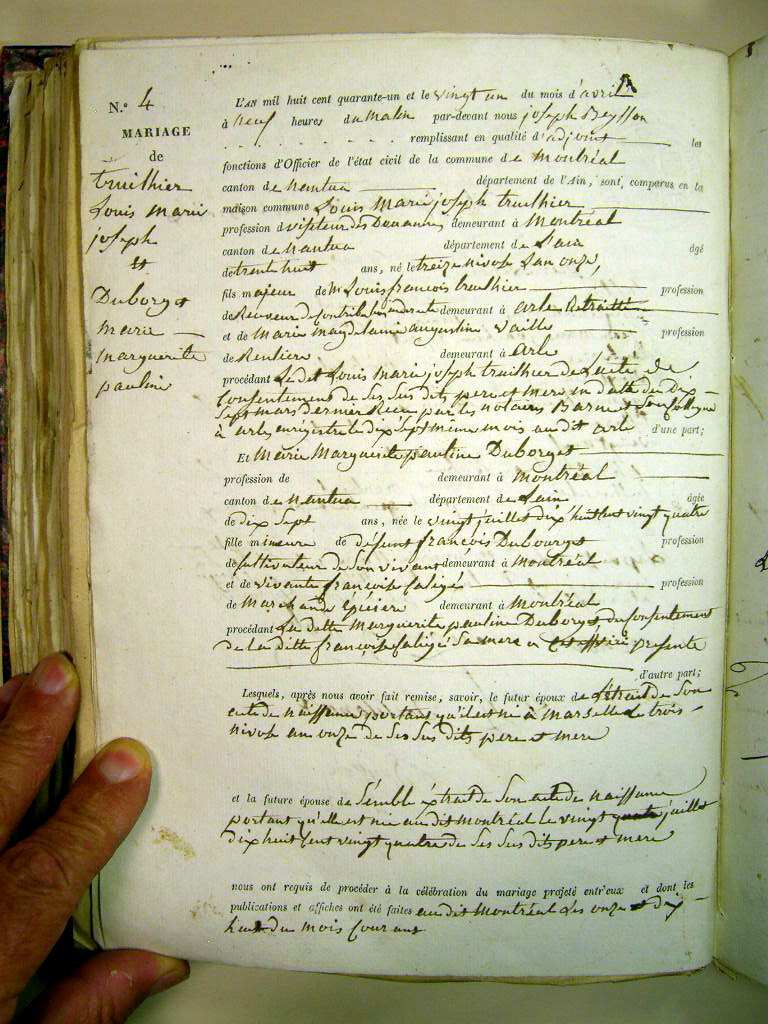 N.° 4
MARIAGE
de
truilhier
Louis marie
joseph
et
Duborget
marie
marguerite
pauline
L'AN mil huit cent quarante-un et le vingt un du mois d'avril
à neuf heures du matin par-devant nous joseph Beysson
remplissant en qualité d'adjoint les
fonctions d'Officier de l'état civil de la commune de Montréal
canton de nantua département de l'Ain, sont comparus en la
maison commune Louis Marie joseph truilhier
profession d visiteur des Douannes demeurant à Montréal
canton de nantua département de L'ain âgé
de trente huit ans, né le treize nivose Lan onze,
fils majeur de Mr Louis françois truilhier profession
de demeurant à arle Retraitté
et de Marie Magdelaine augustine vaille profession
de Rentiere demeurant à arle
procédant Ledet Louis Marie joseph truilhier de
Consentement de ses sus dits pere et mere in datte du Dix
sept mars dernier Reçu par les notaires Barne et son Collegue
à arles enrigistré le dix sept même mois audit arle d'une part;
Et Marie Marguerite pauline Duborget
profession de demeurant à montréal
canton de nantua département de Lain âgée
de dix sept ans, née le vingt juillet dix huit Cent vingt quatre
fille mineure de défunt françois Dubourget profession
de Cultivateur de son vivant demeurant à Montréal
et de vivante françoise profession
de Marchande épiciere demeurant à Montréal
procédant La ditte Marguerite pauline Duborget du Consentement
de la ditte françoise sa mere a présente
d'autre part;
Lesquels, après nous avoir fait remise, savoir, le futur époux de L'Extrait de son
acte de naissance portant qu'il est né à Marselle Le trois
nivose an onze de ses sus dits pere et mere
et la future épouse de semble éxtrait de son acte de naissance
portant qu'elle est née audit Montréal le vingt juillet
dix huit Cent vingt quatre de ses sus dits pere et mere
nous ont requis de procéder à la célébration du mariage projeté entr'eux et dont les
publications et affiches ont été faites audit Montréal les onze et dix
huit du mois Courant